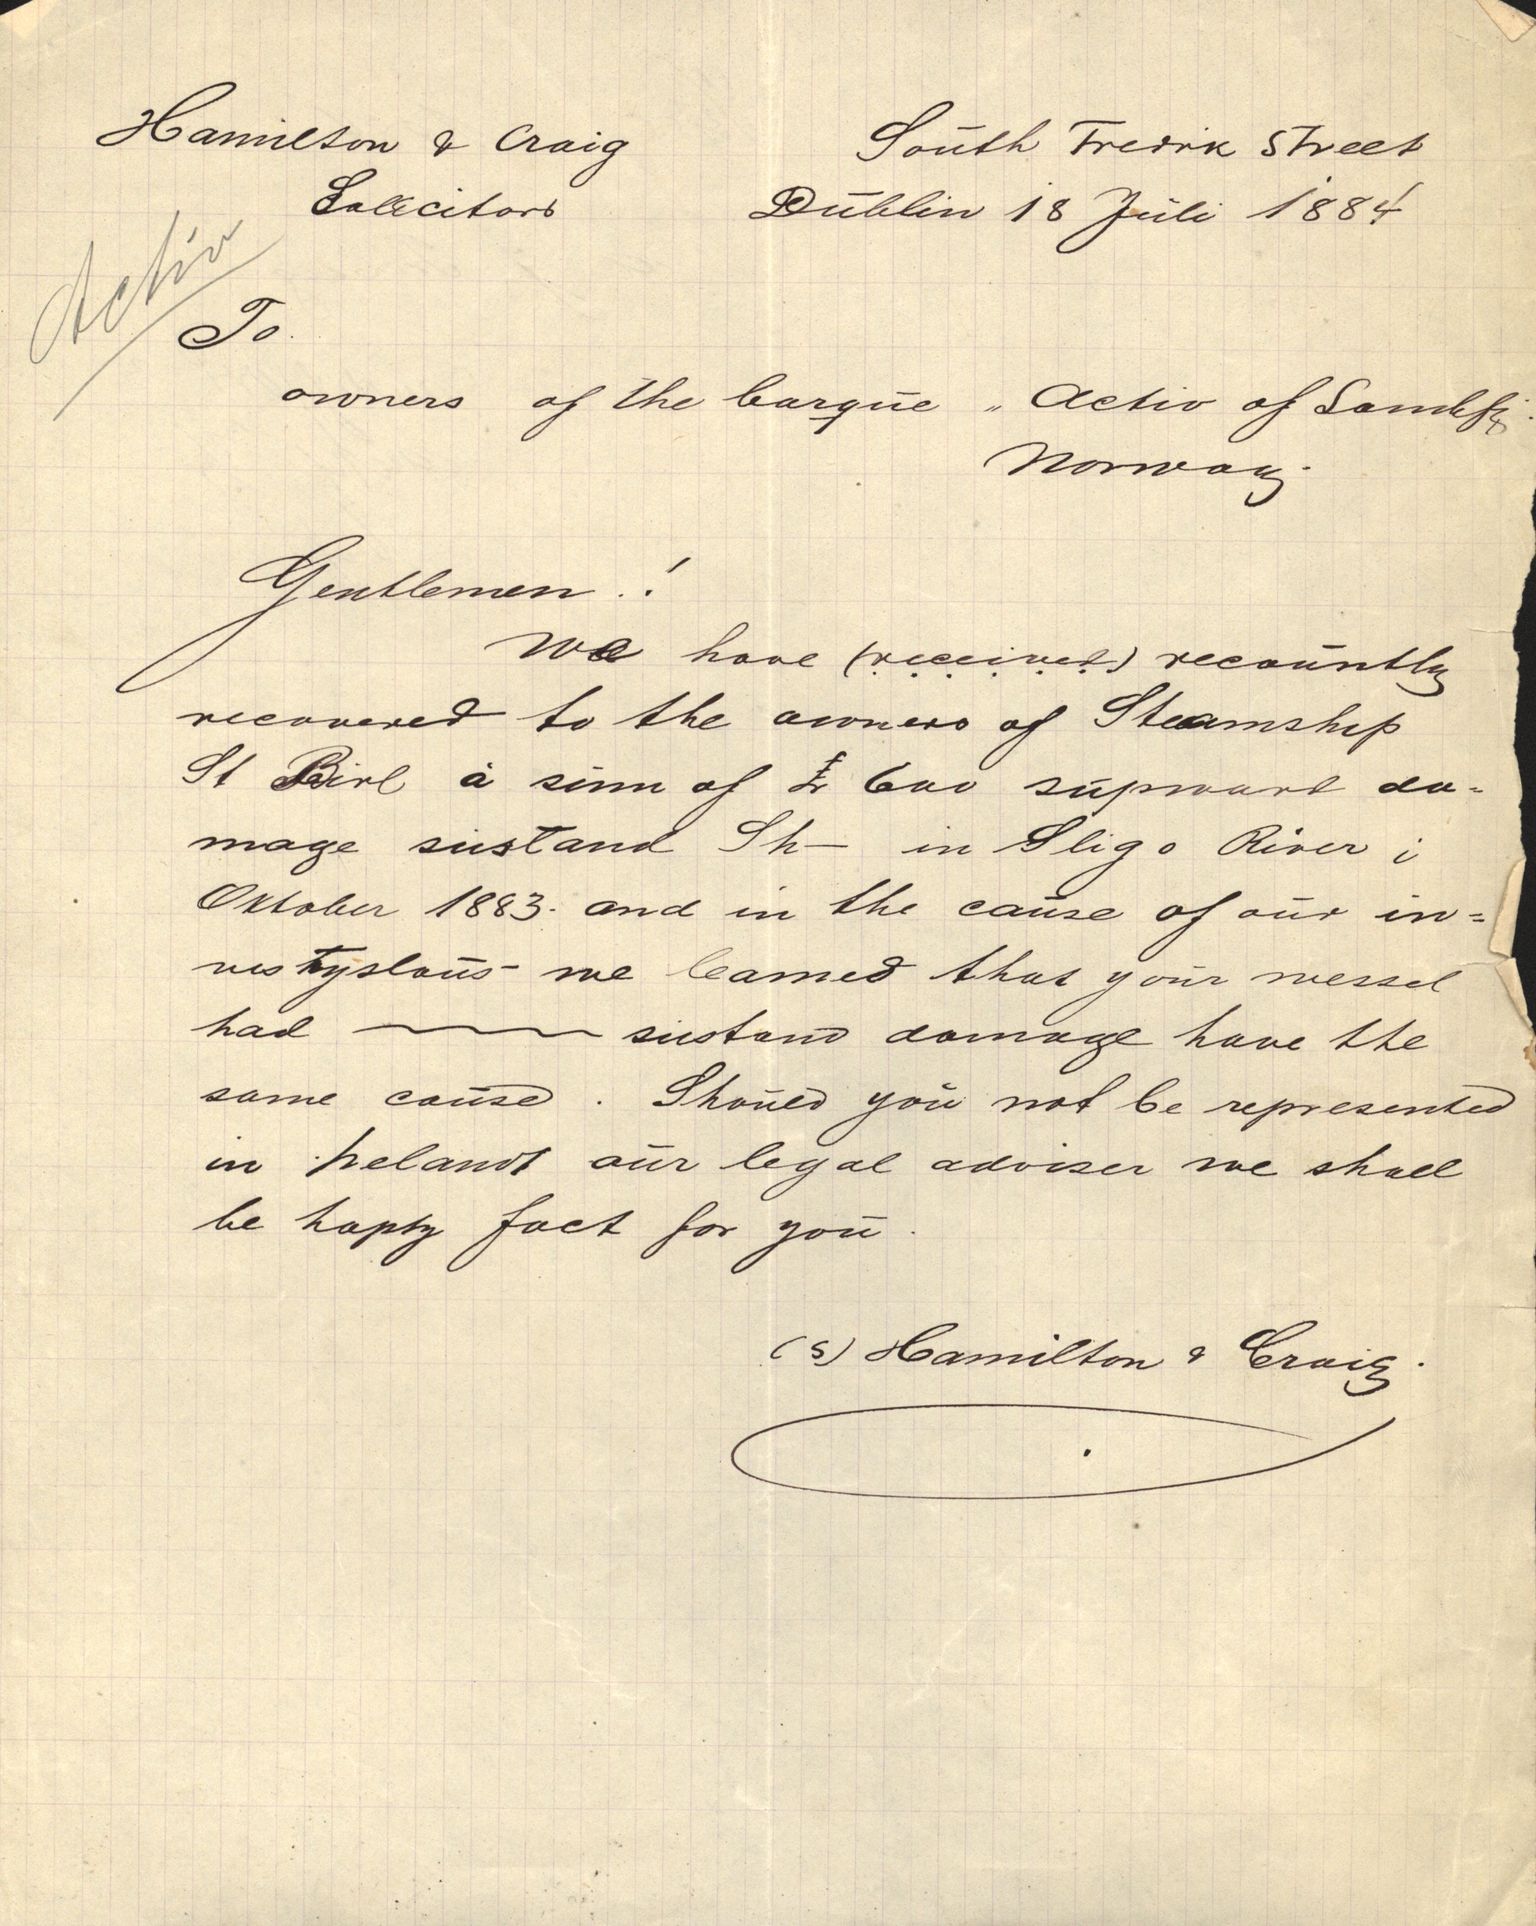 Hamilton & Craig
Solicitors
South Fredrik Street
Dublin 18 Juli 1884
Activ
To.
owners of the barque „ Activ of Sandefj.
Norway.
Gentlemen .!
We have (received) recountly
recovered to the owners of Steamship
St Birl a sum of £ 600 supward da=
mage sustand Sh— in Sligo River i
Oktober 1883. and in the cause of our in=
vestyslous we learned that your wessel
had ——— sustand damage have the
same caused . Should you not be represented
in Irelandt our legal adviser we shall
be happy fact for you .
(s) Hamilton & Craig.